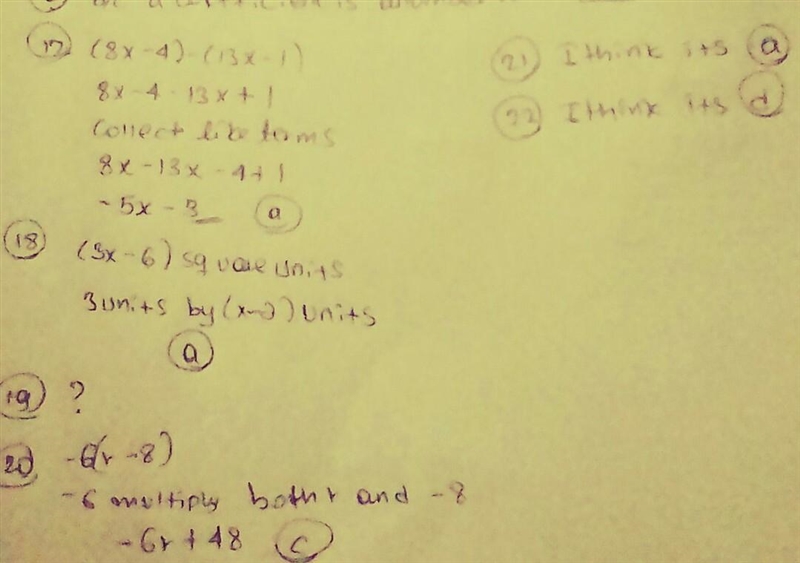 (17) (8x-4)-(13x-1)
8x-4-13x+1
Collect like terms
8x-13x-4+1
-5x-3 (a)
(18) (3x-6) square units
3 units by (x-2) units
(a)
(19) ?
(20) -6(r-8)
-6 multiply both r and -8
-6r+48 (c)
(21) I think its (a)
(22) I think its (d)